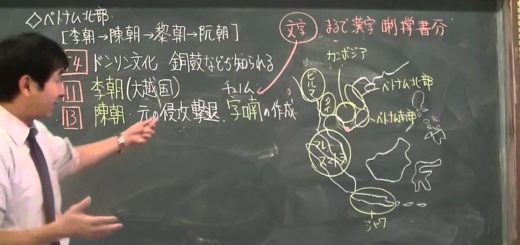 ◇ベトナム北部
[李朝→陳朝→黎朝→阮朝]
4 ドンソン文化 銅鼓などが知られる
11 李朝(大越国)
チュノム
13 陳朝・元の侵攻撃退、字喃の作成
文字
まるで漢字
カンボジア
ビルマ
タイ
ベトナム北部
ベトナム南部
マレーシア
ジャワ